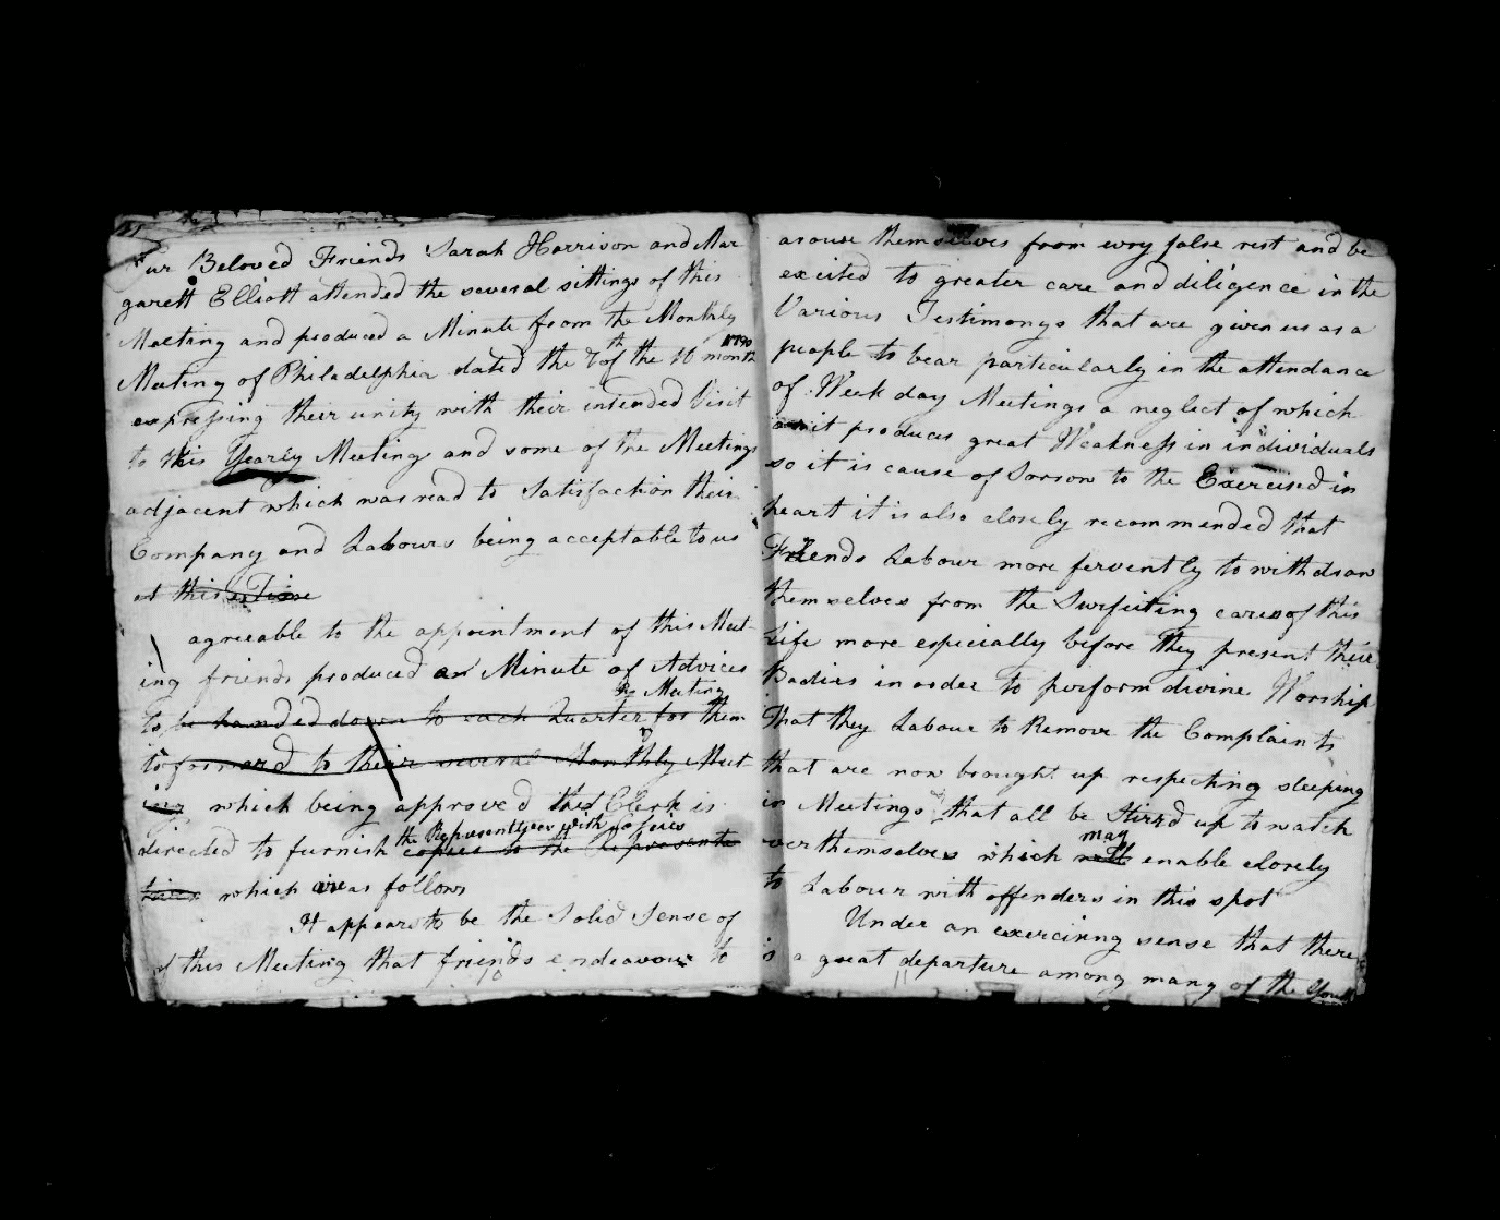 Our Beloved Friends Sarah Harrison and Mar
garett Elliott attended the several sittings of this
Meeting and produced a Minute from the Monthly
1790
Meeting of Philadelphia dated the of the 10 month
expressing their unity with their intended Visit
to this Yearly Meeting and some of the Meetings
adjacent which was read to Satisfaction their
Company and Labours being acceptable to us
at this Time
agreeable to the appointment of this Meet
ing friends produced a Minute of Advices
the Meeting
to be handed down to each Quarter for them
to forward to their several Monthly Meet
ings which being approved the Clerk is
the Representitives with Copies
directed to furnish copies to the Representa
tives which are as follows
It appears to be the Solid Sense of
of this Meeting that friends endeavour to
10
arouse themselves from every false rest and be
excited to greater care and diligence in the
Various Testimonys that are given us as a
people to bear particularly in the attendance
of Week day Meetings a neglect of which
as it produces great Weakness in individuals
so it is cause of Sorrow to the Exercised in
heart it is also closely recommended that
Friends Labour more fervently to withdraw
themselves from the Surfeiting cares of this
Life more especially before they present their
Bodies in order to perform divine Worship
That they Labour to Remove the Complaints
that are now brought up respecting sleeping
in Meetings that all be Stirrd up to watch
may
over themselves which will enable closely
to Labour with offenders in this spot
Under an exercising sense that there
is a great departure among many of the Youth
11